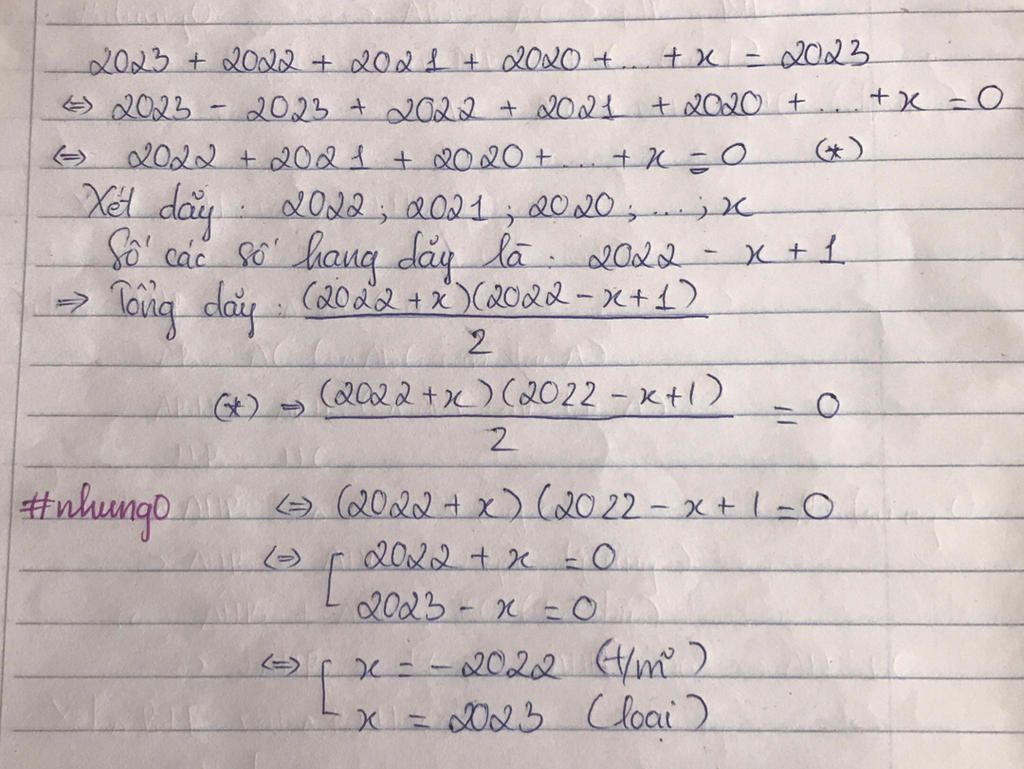 2023 + 2022 + 2021 + 2020 + ... + x = 2023
⇔ 2023 - 2023 + 2022 + 2021 + 2020 + ... + x = 0
⇔ 2022 + 2021 + 2020 + ... + x = 0 (*)
Xét dãy : 2022 ; 2021 ; 2020 ; ... ; x
Số các số hạng dãy là : 2022 - x + 1
⇒ Tổng dãy : (2022 + x)(2022 - x + 1)
2
(*) ⇒ (2022 + x)(2022 - x + 1) = 0
2
#nhungo ⇔ (2022 + x)(2022 - x + 1 = 0
⇔ [ 2022 + x = 0
2023 - x = 0
⇔ [ x = - 2022 (t/m)
x = 2023 (loại)